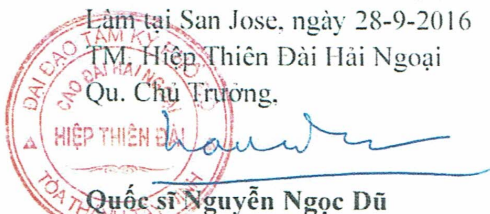 Làm tại San Jose, ngày 28-9-2016
TM. Hiệp Thiên Đài Hải Ngoại
Qu. Chủ Trưởng,
ĐẠI ĐẠO TAM KỲ PHỔ ĐỘ
CAO ĐÀI HẢI NGOẠI
HIỆP THIÊN ĐÀI
Quốc sĩ Nguyễn Ngọc Dũ